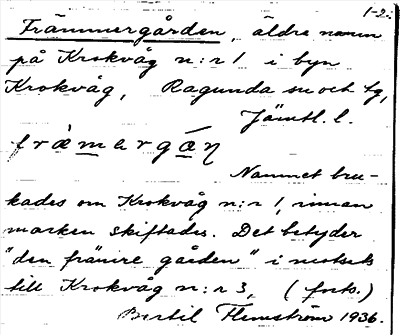 1-2.
Främmergården, äldre namn
på Krokvåg n:r 1 i byn
Krokvåg, Ragunda sn och tg,
Jämtl. l.
fràmargán̥
Namnet bru-
kades om Krokvåg n:r 1, innan
marken skiftades. Det betyder
"den främre gården" i motsats
till Krokvåg n:r 3, (forts.)
Bertil Flemström 1936.